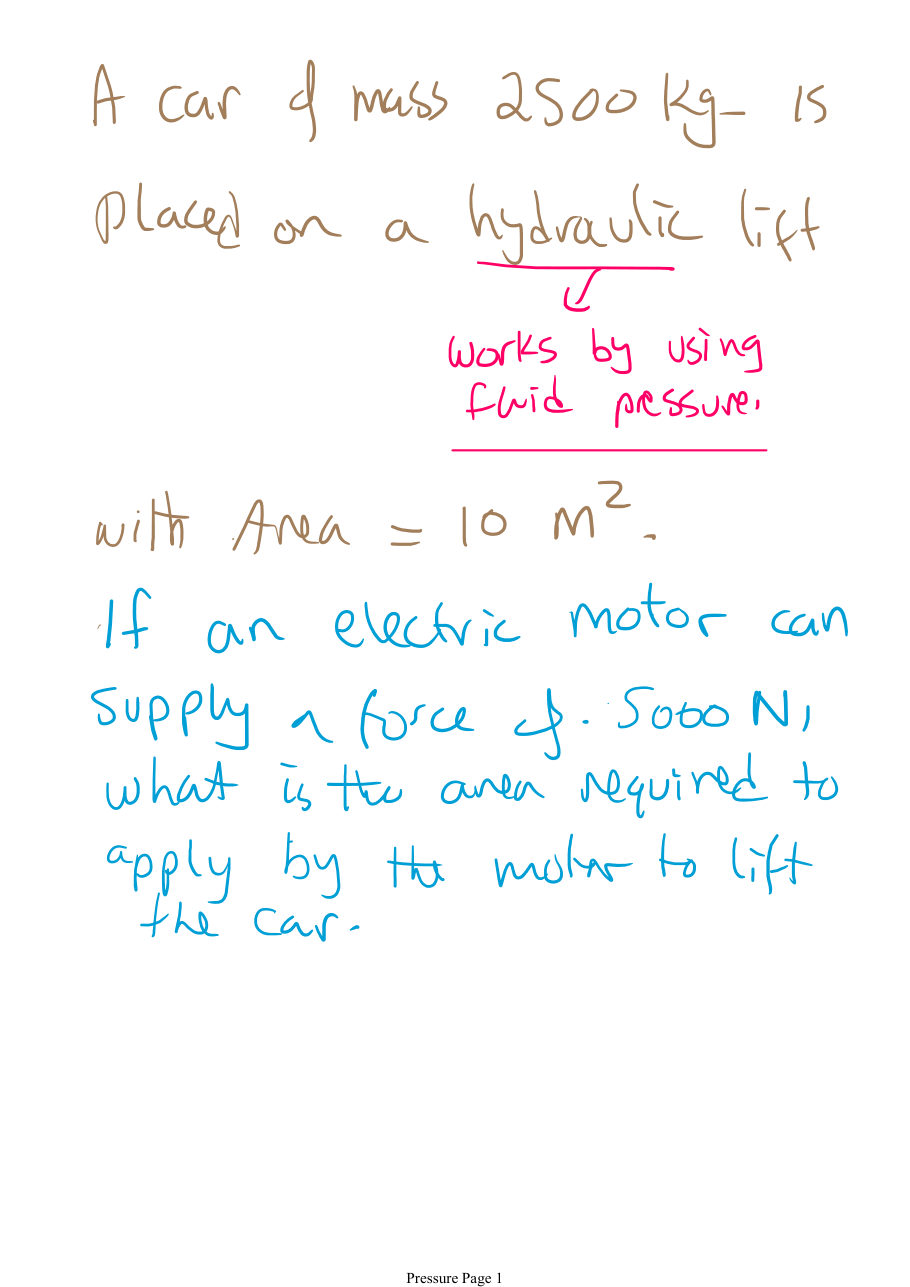 A car of mass 2500 kg is
placed on a hydraulic lift
works by using
fluid pressure.
with Area = 10 m².
If an electric motor can
supply a force of 5000 N,
what is the area required to
apply by the motor to lift
the car.
Pressure Page 1